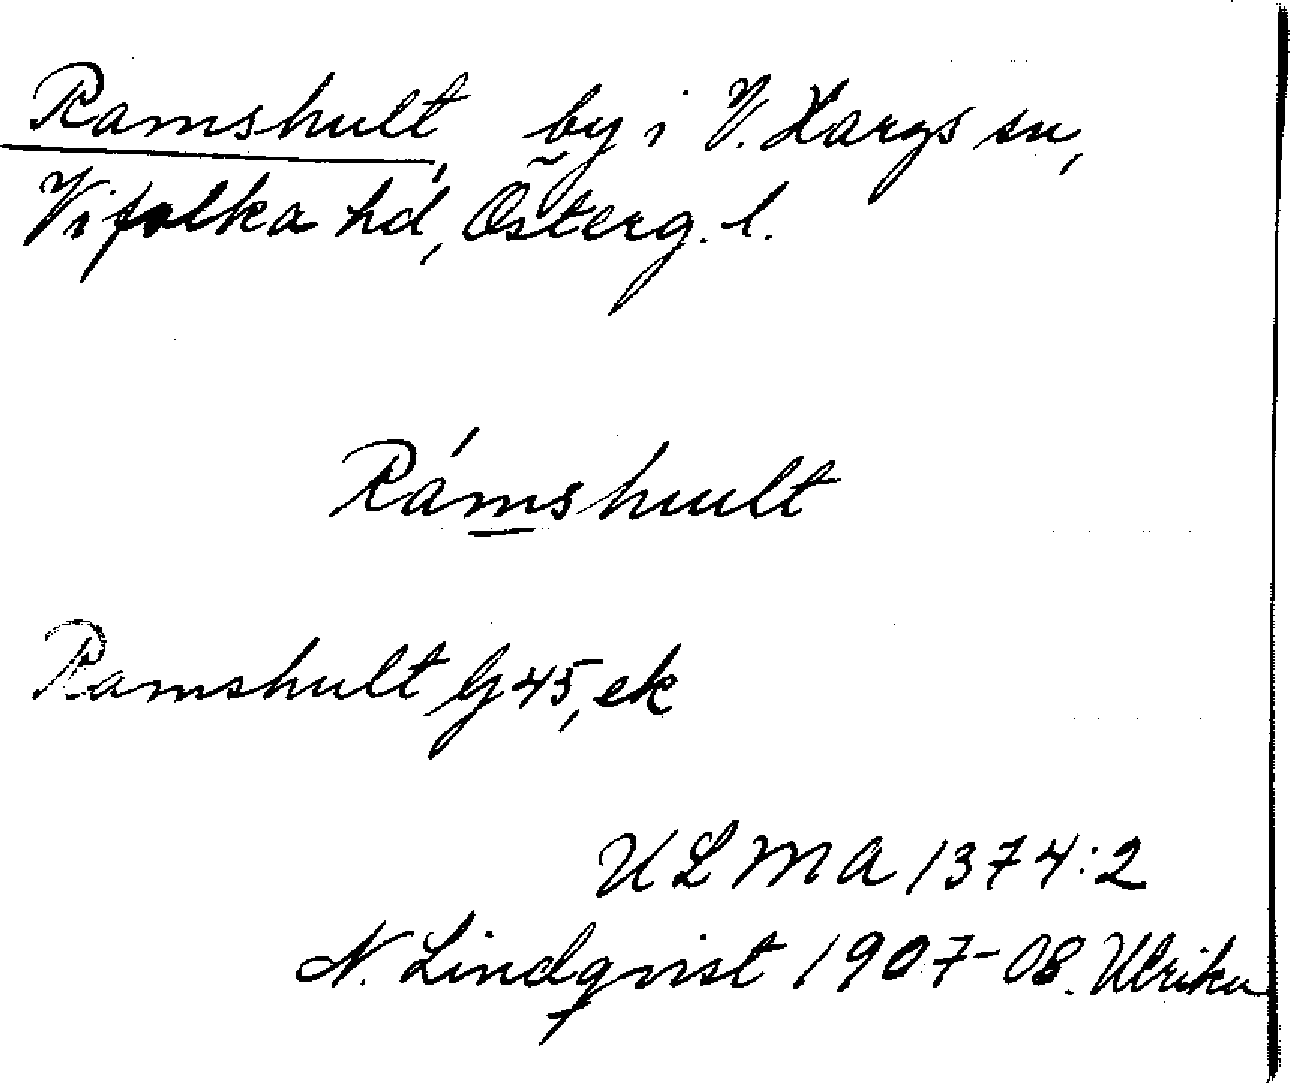 Ramshult, by i V. Hargs sn,
Vifolka hd, Österg. l.
Rámshult
Ramshult G 45, ek
ULMA 1374:2
N. Lindqvist 1907-08. Ulrika